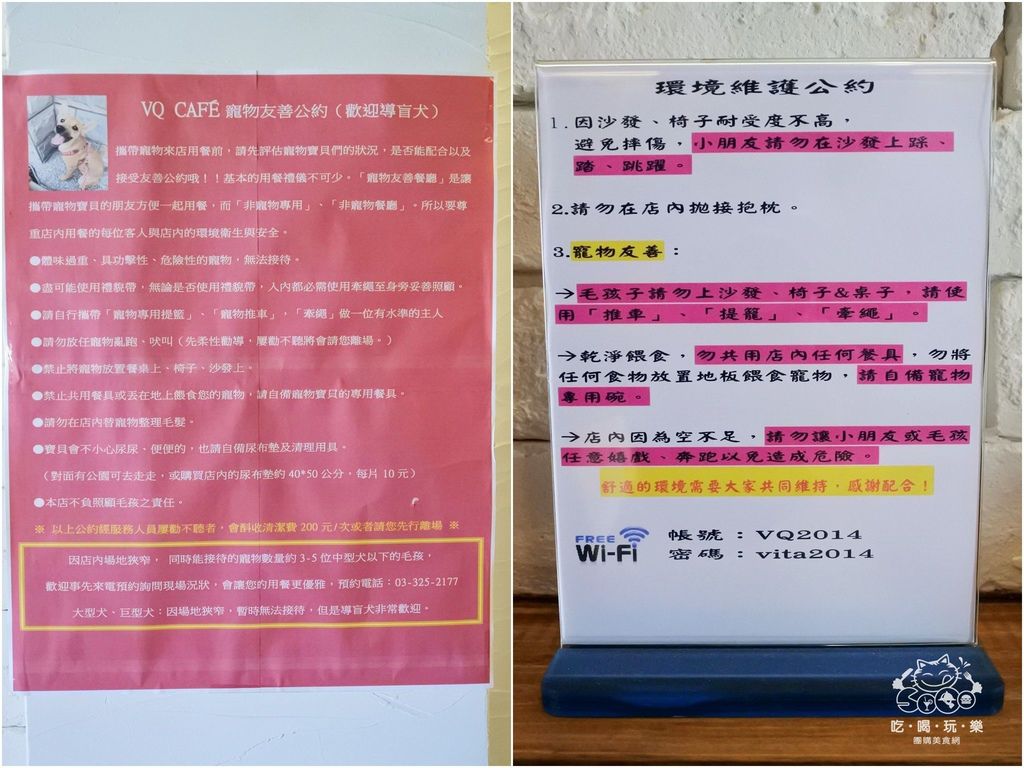 VQ CAFÉ 寵物友善公約（歡迎導盲犬）
攜帶寵物來店用餐前，請先評估寵物寶貝們的狀況，是否能配合以及
接受友善公約哦！！基本的用餐禮儀不可少。「寵物友善餐廳」是讓
攜帶寵物寶貝的朋友方便一起用餐，而「非寵物專用」、「非寵物餐廳」。所以要尊
重店內用餐的每位客人與店內的環境衛生與安全。
●體味過重、具功擊性、危險性的寵物，無法接待。
●盡可能使用禮貌帶，無論是否使用禮貌帶，入內都必需使用牽繩至身旁妥善照顧。
●請自行攜帶「寵物專用提籃」、「寵物推車」，「牽繩」做一位有水準的主人
●請勿放任寵物亂跑、吠叫（先柔性勸導，屢勸不聽將會請您離場。）
●禁止將寵物放置餐桌上、椅子、沙發上。
●禁止共用餐具或丟在地上餵食您的寵物，請自備寵物寶貝的專用餐具。
●請勿在店內替寵物整理毛髮。
●寶貝會不小心尿尿、便便的，也請自備尿布墊及清理用具。
（對面有公園可去走走，或購買店內的尿布墊約 40*50 公分，每片 10 元）
●本店不負照顧毛孩之責任。
※ 以上公約經服務人員屢勸不聽者，會酙收清潔費 200 元/次或者請您先行離場 ※
因店內場地狹窄， 同時能接待的寵物數量約 3-5 位中型犬以下的毛孩，
歡迎事先來電預約詢問現場況狀，會讓您的用餐更優雅，預約電話：03-325-2177
大型犬、巨型犬：因場地狹窄，暫時無法接待，但是導盲犬非常歡迎。
環境維護公約
1.因沙發、椅子耐受度不高，
避免摔傷，小朋友請勿在沙發上踩、
踏、跳躍。
2.請勿在店內拋接抱枕。
3.寵物友善：
→毛孩子請勿上沙發、椅子&桌子，請使
用「推車」、「提籠」、「牽繩」。
→乾淨餵食，勿共用店內任何餐具，勿將
任何食物放置地板餵食寵物，請自備寵物
專用碗。
→店內因為空不足，請勿讓小朋友或毛孩
任意嬉戲、奔跑以免造成危險。
舒適的環境需要大家共同維持，感謝配合！
FREE
Wi-Fi
帳號：VQ2014
密碼：vita2014
吃·喝·玩·樂
團購美食網